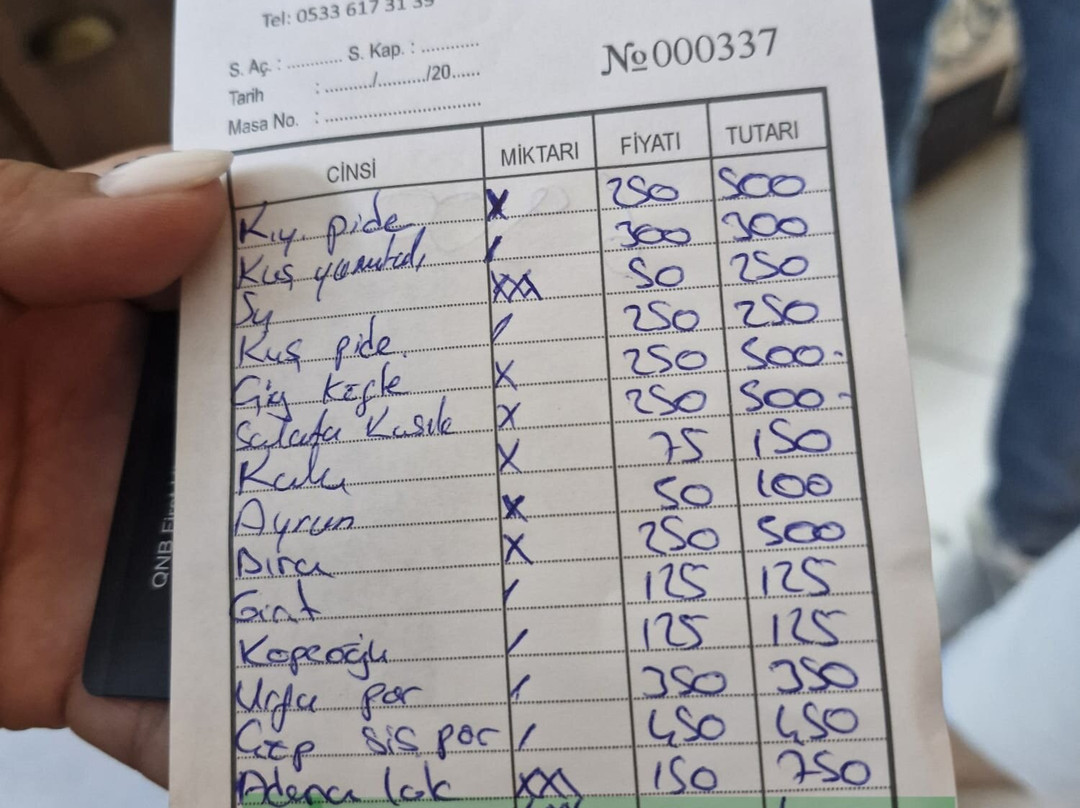 Tel: 0533 617 31 39
S. Aç. : ............ S. Kap. : ............
Tarih : ........../........../20......
Masa No. : ......................................
No 000337
CİNSİ MİKTARI FİYATI TUTARI
Kıy. pide X 250 500
Kuş yumurtalı / 300 300
Su XXX 50 250
Kuş pide. / 250 250
Çiğ köfte X 250 500-
Salata Kaşık X 250 500-
X 75 150
Ayran X 50 100
Bira X 250 500
/ 125 125
Köpeoğlu / 125 125
Urfa por / 350 350
şiş por / 450 450
Adana XXX 150 750
QNB